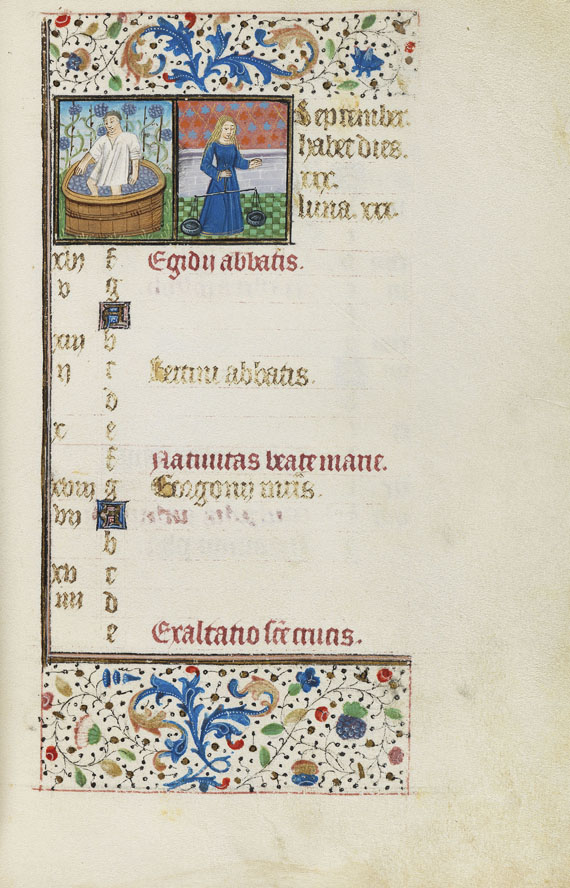 September
habet dies.
xxx.
luna. xxx.
xvj f Egidij abbatis.
v g
A
xiij b
ij c Bertini abbatis.
d
x e
f Natiuitas beate marie.
xviij g Gorgonij mris.
vij A
b
xv c
iiij d
e Exaltatio scē crucis.